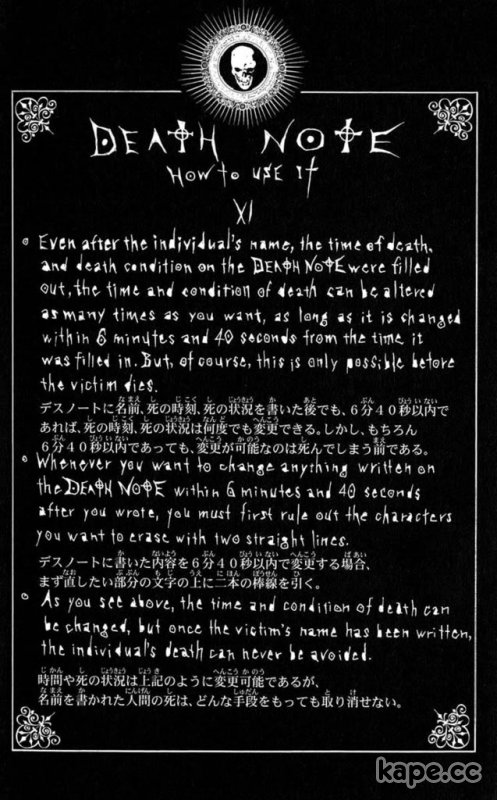 DEATH NOTE
HOW TO USE IT
XI
Even after the individual's name, the time of death,
and death condition on the DEATH NOTE were filled
out, the time and condition of death can be altered
as many times as you want, as long as it is changed
within 6 minutes and 40 seconds from the time it
was filled in. But, of course, this is only possible before
the victim dies.
デスノートに名前、死の時刻、死の状況を書いた後でも、6分40秒以内で
あれば、死の時刻、死の状況は何度でも変更できる。しかし、もちろん
6分40秒以内であっても、変更が可能なのは死んでしまう前である。
Whenever you want to change anything written on
the DEATH NOTE within 6 minutes and 40 seconds
after you wrote, you must first rule out the characters
you want to erase with two straight lines.
デスノートに書いた内容を6分40秒以内で変更する場合、
まず直したい部分の文字の上に二本の棒線を引く。
As you see above, the time and condition of death can
be changed, but once the victim's name has been written,
the individual's death can never be avoided.
時間や死の状況は上記のように変更可能であるが、
名前を書かれた人間の死は、どんな手段をもっても取り消せない。
kape.cc